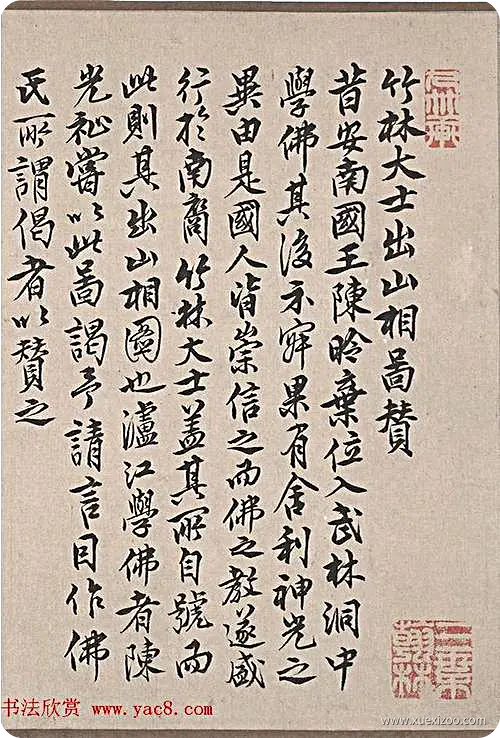 竹林大士出山相啚賛
昔安南國王陳昑棄位入武林洞中
學佛其後示寂果有舍利神光之
異由是國人皆崇信之而佛之教遂盛
行於南裔竹林大士盖其所自號而
此則其出山相圖也瀘江學佛者陳
光祉嘗以此啚謁予請言因作佛
氏所謂偈者以賛之
三畏
翰林
书法欣赏 www.yac8.com
www.xuexizoo.com